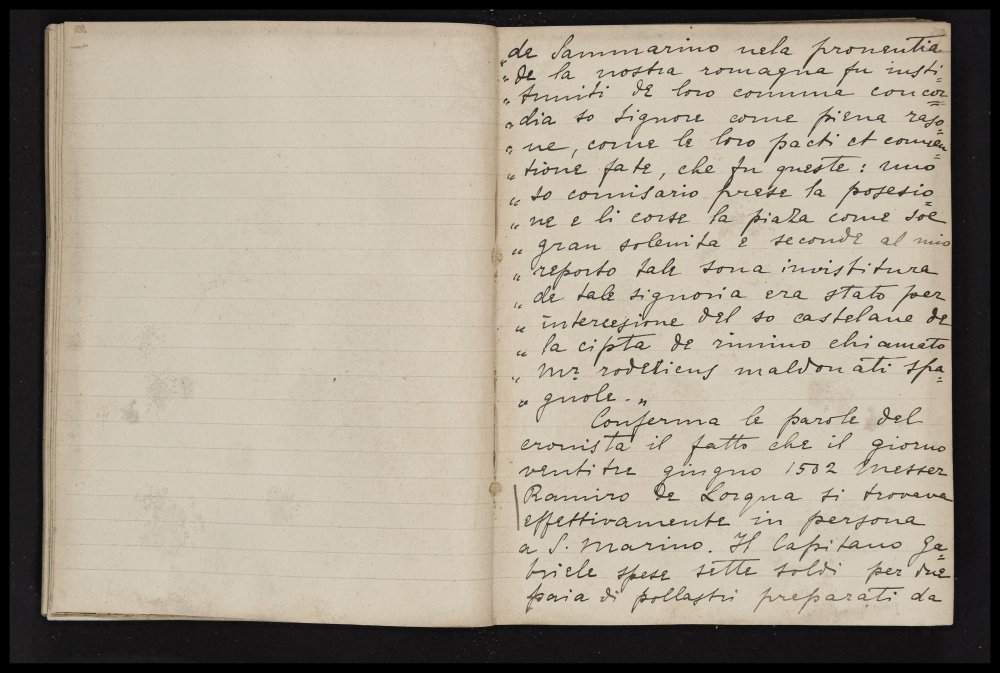 „ de Sammarino nela proventia
„ de la nostra romagna fu insti=
„ tuuiti de loro comuna concor=
„ dia so signore come piena raso=
„ ne, come le loro pacti et conven=
„ tione fate, che fu queste: uno
„ so comisario prese la posesio=
„ ne e li corse la piaza come soe
„ gran solenita e seconde al mio
„ reporto tale sona invistitura
„ de tale signoria era stato per
„ intercesione del so castelane de
„ la cipta de rimino chiamato
„ Mr. roderiens maldonati spa=
„ gnole. „
Conferma le parole del
cronista il fatto che il giorno
ventitre giugno 1502 Messer
Ramiro de Lorqua si trovava
effettivamente in persona
a S. Marino. Il Capitano Ga=
briele spese sette soldi per due
paia di pollastri preparati da